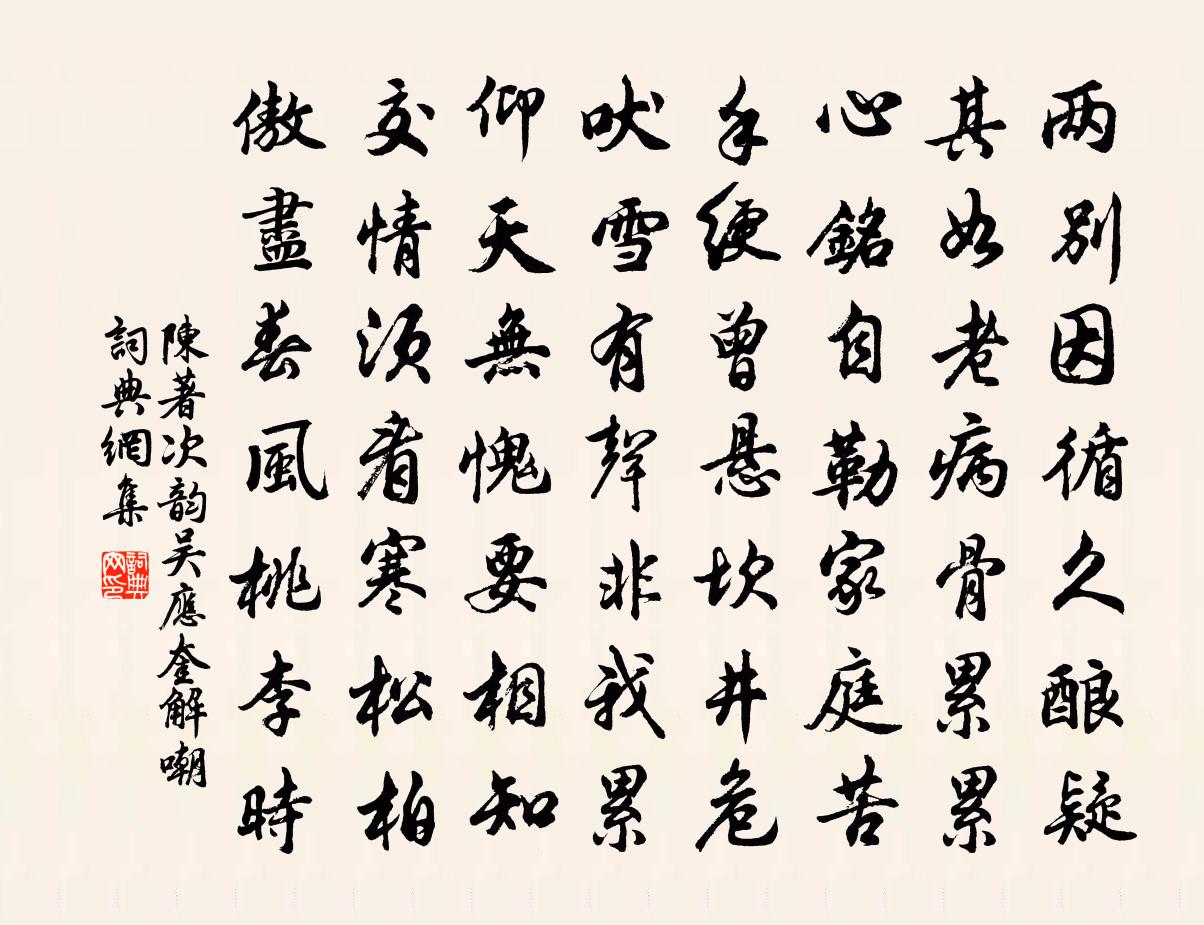 两别因循久酿疑
其如老病骨累累
心銘自勒家庭苦
手綆曾悬坎井危
吠雪有聲非我累
仰天無愧要相知
交情須看寒松柏
傲盡春風桃李時
陳著次韵吴應奎解嘲
詞典網集
詞典